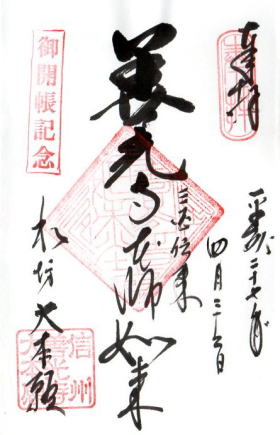 奉拝
平成二十七年
四月二十六日
三国伝来
善光寺本師如来
御開帳記念
大本願
信州
善光寺
大本願